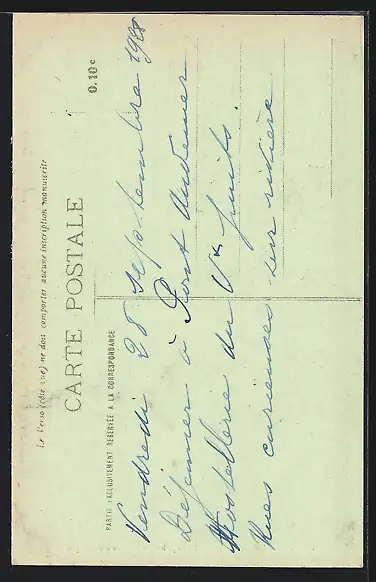 Le Verso (côté vue) ne doit comporter aucune inscription manuscrite
CARTE POSTALE
0.10 c
PARTIE EXCLUSITEMENT RÉSERVÉE A LA CORRESPONDANCE
Vendredi 28 septembre 1928
Déjeuner à Pont Audemer
Hostellerie du Vx puits.
Rues curieuses sur rivière